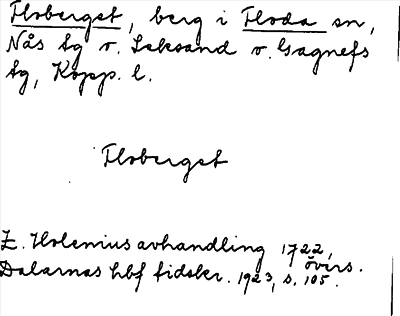 Floberget, berg i Floda sn,
Nås tg v. Leksand o. Gagnefs
tg, Kopp. l.
Floberget
E. Holenius avhandling 1722,
övers.
Dalarnas hbf tidskr. 1923, s. 105.